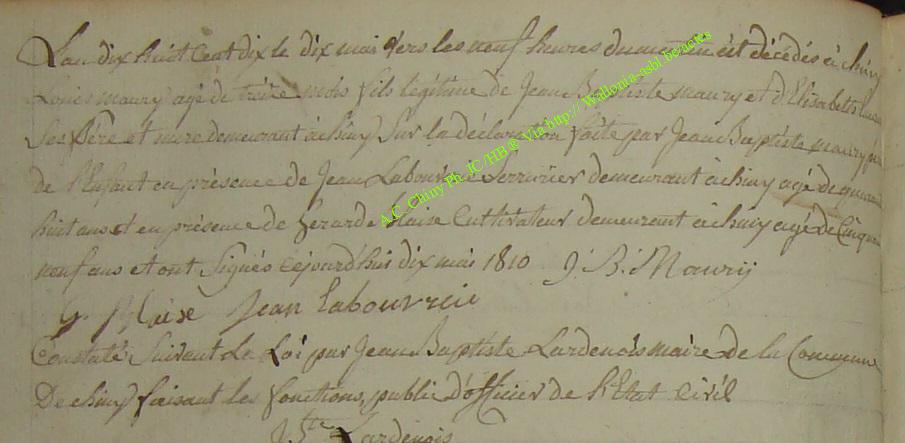 L'an dix huit cent dix le dix mai vers les neuf heures du matin est décédés à chiny
Louis maury agé de treize mois fils légitime de Jean Baptiste maury et d'Elisabeth
Ses père et mere demeurant à chiny Sur la déclaration faite par Jean Baptiste maury
de l'Enfant en présence de Jean Serrurier demeurant à chiny agé de
huit ans et en présence de Gerarde blaise Cultivateur demeurant à chiny agé de Cinquante
neuf ans et ont Signés cejourd'hui dix mai 1810 J. B. Maury
G. Blaise Jean Labouvrie
Constaté Suivant La Loi par Jean Baptiste Lardenois maire de la Commune
De chiny faisant les fonctions public d'officier de l'Etat Civil
J. Bte Lardenois
A.C. Chiny Ph. JC/HB @ Via http://Wallonia-asbl.be/actes